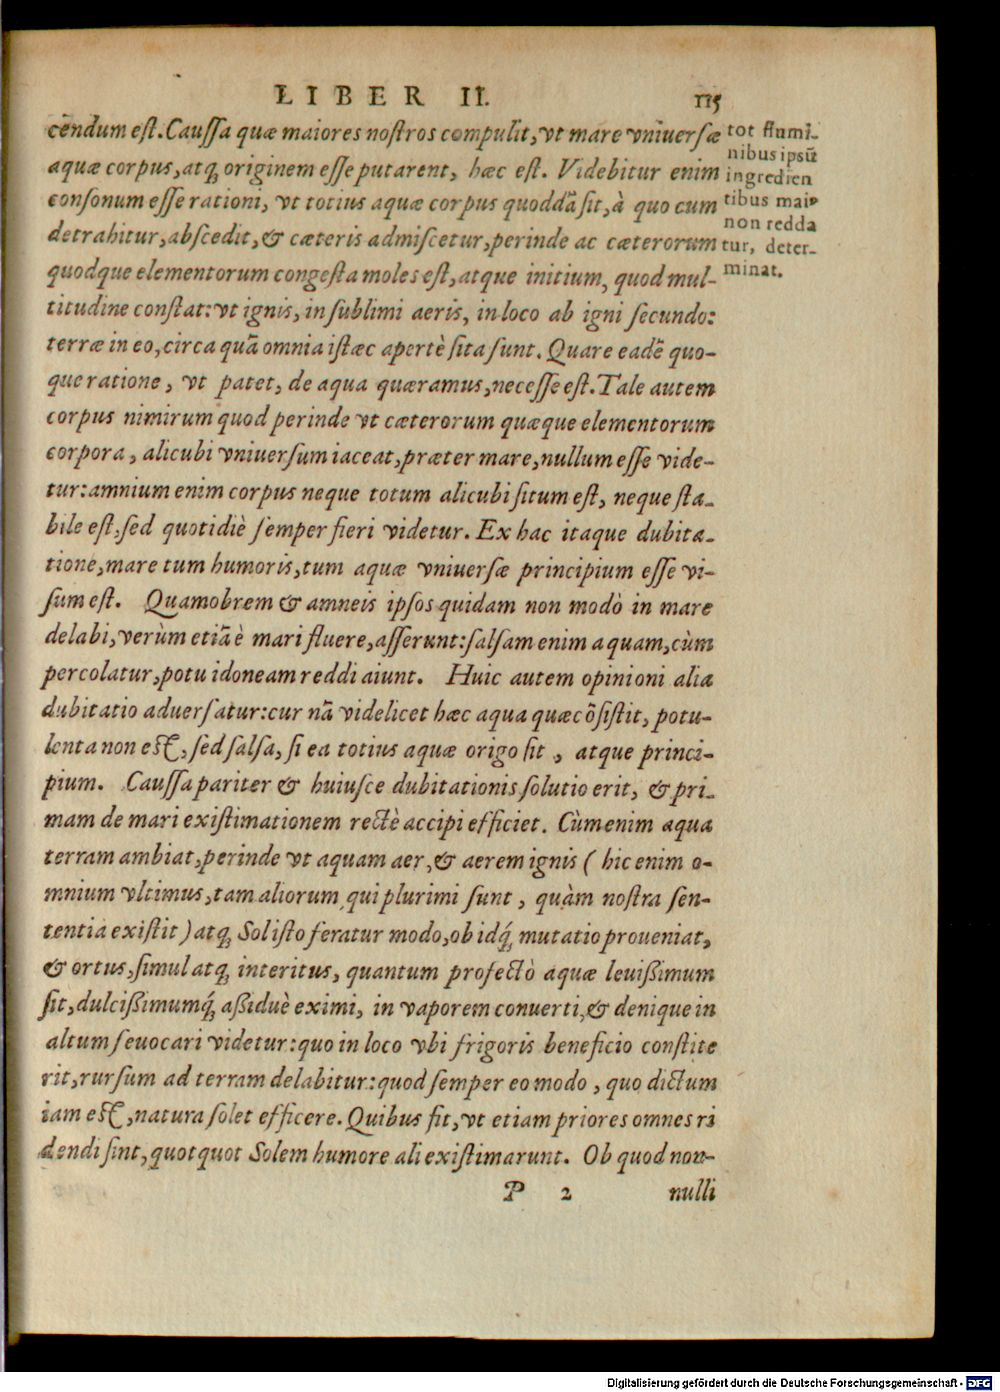 LIBER II. 115
cendum est. Caussa quæ maiores nostros compulit, vt mare vniuersæ
aquæ corpus, atq; originem esse putarent, hæc est. Videbitur enim
consonum esse rationi, vt totius aquæ corpus quoddã sit, à quo cum
detrahitur, abscedit, & cæteris admiscetur, perinde ac cæterorum
quodque elementorum congesta moles est, atque initium, quod mul-
titudine constat: vt ignis, in sublimi aeris, in loco ab igni secundo:
terræ in eo, circa quã omnia istæc apertè sita sunt. Quare eadẽ quo-
que ratione, vt patet, de aqua quæramus, necesse est. Tale autem
corpus nimirum quod perinde vt cæterorum quæque elementorum
corpora, alicubi vniuersum iaceat, præter mare, nullum esse vide-
tur: amnium enim corpus neque totum alicubi situm est, neque sta-
bile est, sed quotidiè semper fieri videtur. Ex hac itaque dubita-
tione, mare tum humoris, tum aquæ vniuersæ principium esse vi-
sum est. Quamobrem & amneis ipsos quidam non modò in mare
delabi, verùm etiã è mari fluere, asserunt: salsam enim aquam, cùm
percolatur, potu idoneam reddi aiunt. Huic autem opinioni alia
dubitatio aduersatur: cur nã videlicet hæc aqua quæ cõsistit, potu-
lenta non est, sed salsa, si ea totius aquæ origo sit, atque princi-
pium. Caussa pariter & huiusce dubitationis solutio erit, & pri-
mam de mari existimationem rectè accipi efficiet. Cùm enim aqua
terram ambiat, perinde vt aquam aer, & aerem ignis ( hic enim o-
mnium vltimus, tam aliorum qui plurimi sunt, quàm nostra sen-
tentia existit ) atq; Sol isto feratur modo, ob idq́; mutatio proueniat,
& ortus, simul atq; interitus, quantum profectò aquæ leuißimum
sit, dulcißimumq́; aßiduè eximi, in vaporem conuerti, & denique in
altum seuocari videtur: quo in loco vbi frigoris beneficio constite
rit, rursum ad terram delabitur: quod semper eo modo, quo dictum
iam est, natura solet efficere. Quibus fit, vt etiam priores omnes ri
dendi sint, quotquot Solem humore ali existimarunt. Ob quod non-
P 2 nulli
tot flumi-
nibus ipsũ
ingredien
tibus maiꝰ
non redda
tur, deter-
minat.
Digitalisierung gefördert durch die Deutsche Forschungsgemeinschaft - DFG